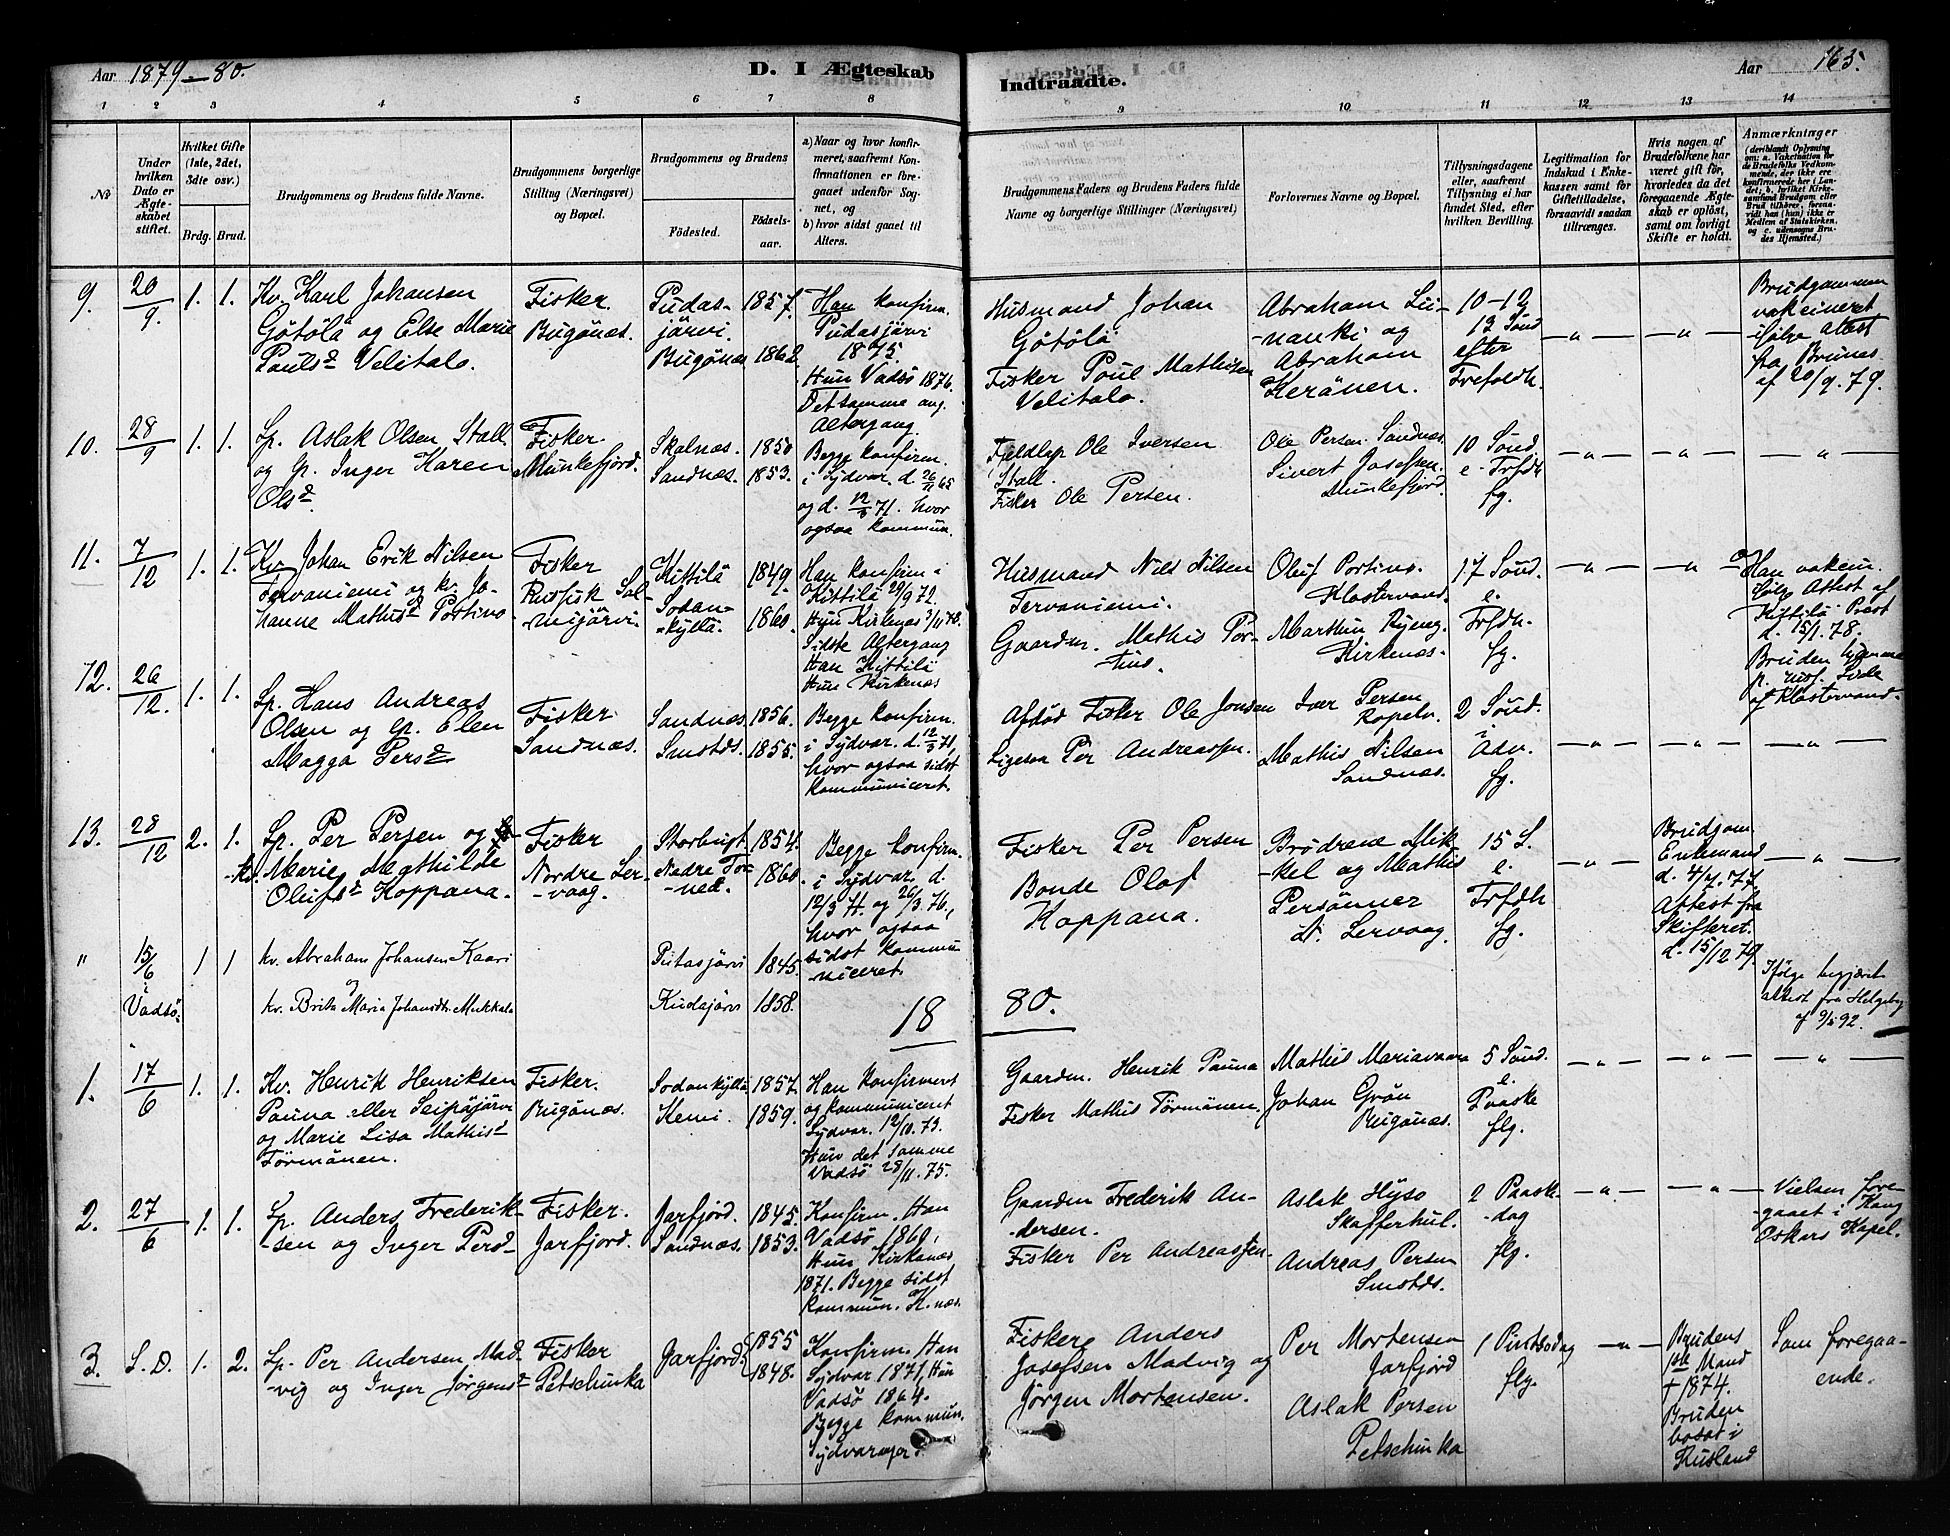 Aar 1879-80.
D. I Ægteskab
Indtraadte.
Aar 165.
1 2 3 4 5 6 7 8 9 10 11 12 13 14
No
Under hvilken Dato er Ægteskabet stiftet.
Hvilket Gifte (1ste, 2det, 3die osv.)
Brdg. Brud.
Brudgommens og Brudens fulde Navne.
Brudgommens borgerlige Stilling (Næringsvei) og Bopæl.
Brudgommens og Brudens
Födested.
Födsels-aar.
a) Naar og hvor konfirmeret, saafremt Konfirmationen er foregaaet udenfor Sognet, og
b) hvor sidst gaaet til Alters.
Brudgommens Faders og Brudens Faders fulde Navne og borgerlige Stillinger (Næringsvei)
Forlovernes Navne og Bopæl.
Tillysningsdagene eller, saafremt Tillysning ei har fundet Sted, efter hvilken Bevilling.
Legitimation for Indskud i Enkekassen samt for Giftetilladelse, forsaavidt saadan tiltrænges.
Hvis nogen af Brudefolkene har været gift för, hvorledes da det foregaaende Ægteskab er oplöst, samt om lovligt Skifte er holdt.
Anmærkninger (deriblandt Oplysning om: a. Vakcination for Brudefolks Vedkommende, der ikke ere konfirmerede her i Landet; b. hvilket Kirkesamfund Brudgom eller Brud tilhörer, forsaavidt han (hun) ikke er Medlem af Statskirken, og c. udensogns Brudes Hjemsted.)
9. 20/9. 1. 1.
Kv. Karl Johansen
Götölä og Else Marie
Pauls d Velitalo.
Fisker
Bugönæs.
Pudas-
järvi. 1857.
Bugönæs 1862
Han konfirm.
Pudasjärvi
1875.
Hun Vadsö 1876.
Det samme ang.
Altergang.
Husmand Johan
Götölä
Fisker Poul Mathisen
Velitalo.
Abraham Lii-
nanki og
Abraham
Keränen.
10-12
13 Sönd
efter
Trefoldh.
Brudgommen
vakcineret
ifölge Attest
fra
af 20/9. 79.
10. 28/9 1. 1.
Lp. Aslak Olsen Stall
og lp. Inger Karen
Ols d.
Fisker
Munkefjord.
Skalnæs. 1850
Sandnæs. 1853.
Begge konfirm.
i Sydvar. d. 26/11 65
og d. 12/3 71. hvor
ogsaa kommun.
Fjeldlap Ole Iversen
Stall.
Fisker Ole Persen.
Ole Persen Sandnæs.
Sivert Josefsen
Munkefjord.
10 Sönd
e. Trfdh
fg.
11. 7/12 1. 1.
Kv. Johan Erik Nilsen
Tervaniemi og kv. Jo-
hanne Mathis d Portino
Fisker
Russisk Sal-
mijärvi.
Kittilä 1849.
Sodan-
kyllä. 1860.
Han konfirm i
Kittilä 29/9 72.
Hun Kirkenæs 3/11 78.
Sidste Altergang
Han Kittilä
Hun Kirkenæs
Husmand Nils Nilsen
Tervaniemi.
Gaardm. Mathis Por-
tino.
Oluf Portino.
Klostervand.
Marthin Ryeng
Kirkenæs.
17 Sönd.
e.
Trfdh.
fg.
Han vakcin.
ifölge Attest af
Kittilä Præst
d. 15/1. 78.
Bruden hjemme
p. russ. Side
af Klostervand.
12. 26/12. 1. 1.
Lp. Hans Andreas
Olsen og lp. Elen
Magga Pers d
Fisker
Sandnæs.
Sandnæs. 1856.
Smstds. 1855.
Begge konfirm.
i Sydvar. d. 12/3 71,
hvor ogsaa sidst
kommuniceret.
Afdöd Fisker Ole Jonsen
Ligesaa Per Andreassen.
Iver Persen
Ropelv.
Mathis Nilsen
Sandnæs.
2 Sönd.
i
Adv.
fg.
13. 28/12 2. 1.
Lp. Per Persen og
kv. Marie Mathilde
Olufs d Koppana.
Fisker
Nordre Ler-
vaag.
Storbugt 1854.
Nedre Tor-
neå. 1860.
Begge konfirm.
i Sydvar. d.
12/3 71. og 26/3. 76,
hvor ogsaa
sidst kommu
niceret.
Fisker Per Persen
Bonde Olof
Koppana.
Brödrene Mik-
kel og Mathis
Persönner
N. Lervaag.
15 S.
e.
Trfdh
fg.
Brudgom.
Enkemand
d. 4/7. 77.
Attest fra
Skifteret.
d. 15/12 79.
" 15/6 i Vadsö 1 1
kv. Abraham Johansen Kaari
og
kv. Brita Maria Johansdtr. Mukkala
Putasjärvi 1845.
Kudasjärvi 1858.
Ifölge begjæret
attest fra Helgeby
af 9/5 92.
18 80.
1. 17/6 1. 1.
Kv. Henrik Henriksen
Pauna eller Seipäjärvi
og Marie Lisa Mathis d
Törmänen.
Fisker.
Bugönæs.
Sodankyllä 1857.
Kemi. 1859.
Han konfirmeret
og kommuniceret
Sydvar. 12/10. 73.
Hun det samme
Vadsö 28/11. 75.
Gaardm. Henrik Pauna
Fisker Mathis Törmänen.
Mathis Mariavaara
Johan Grön
Bugönæs.
5 Sönd.
e.
Paaske
flg.
2. 27/6 1. 1.
Lp. Anders Frederik-
sen og Inger Persd
Fisker.
Jarfjord.
Jarfjord. 1845.
Sandnæs. 1853.
Konfirm. Han
Vadsö 1860,
Hun Kirkenæs
1871. Begge sidst
kommun. K.næs.
Gaardm Frederik An-
dersen.
Fisker Per Andreassen.
Aslak Hyso
Skafferhul.
Andreas Persen
Smstds.
2 Paaske-
dag
flg.
Vielsen fore-
gaaet i Kong
Oskars Kapel.
3. S. D. 1. 2.
Lp. Per Andersen Mad-
vig og Inger Jörgens d
Fisker
Petschinka
Jarfjord 1855
1848.
Konfirm. Han
Sydvar 1871, Hun
Vadsö 1864.
Begge kommun.
Sydvaranger.
Fiskere Anders
Josefsen Madvig og
Jörgen Mortensen.
Per Mortensen
Jarfjord
Aslak Persen
Petschinka
1 Pintsedag
flg.
Brudens
1ste Mand
† 1874.
Bruden
bosat i
Rusland
Som foregaa-
ende.